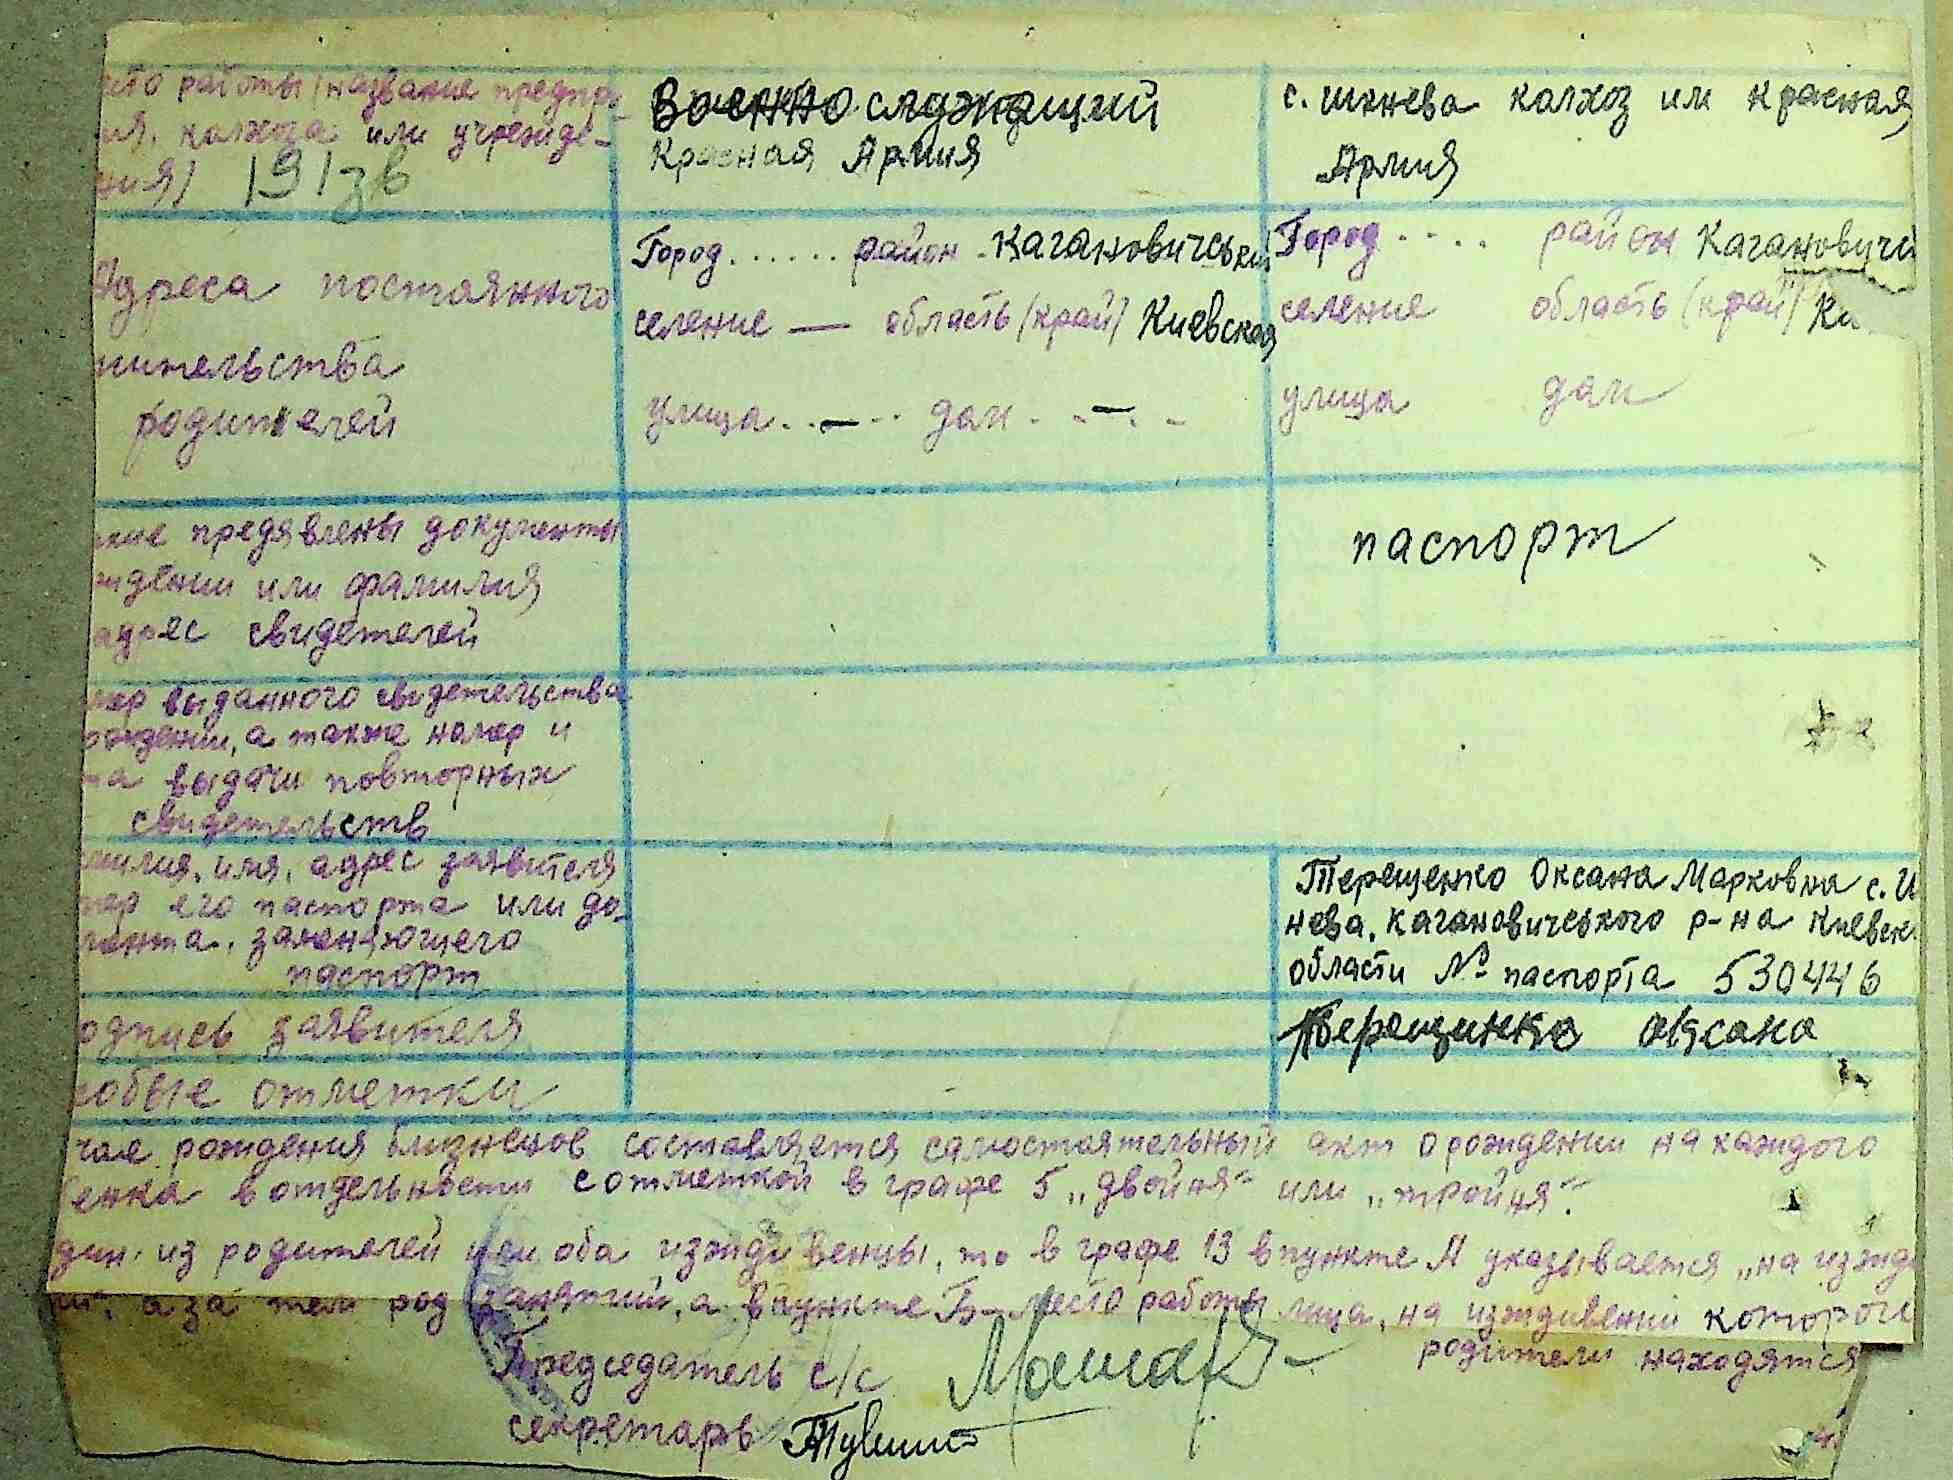 сто работы (название предпр
ия, колхоза или учрежде-
ния) 191зв
Военнослужащий
Красная Армия
с. шкнева колхоз им красная
Армия
Адреса постоянного
жительства
родителей
Город...... район Кагановичський
селение — область (край) Киевская
улица..—.. дом. -—. -
Город.... район Каганович
селение область (край) Ки
улица дом
кие предявлены документы
ждении или фамилия
адрес свидетелей
паспорт
мер выданного свидетельства
рождении, а также номер и
та выдачи повторных
свидетельств
милия, имя, адрес заявителя
мер его паспорта или до-
мента, заменяющего
паспорт
Терещенко Оксана Марковна с. И
нева, кагановичського р-на Киевск.
области № паспорта 530446
одпись заявителя
Терещинко оксана
собые отметки
чае рождения близнецов составляется самостоятельный акт о рождении на каждого
бенка в отдельности с отметкой в графе 5 „двойня“ или „тройня“.
дин из родителей или оба иждивенцы, то в графе 13 в пункте А указывается „на ижди
ии“, а за тем род занятий, а в пункте Б-место работы лица, на иждивении которого
родители находятся
Председатель с/с
секретарь